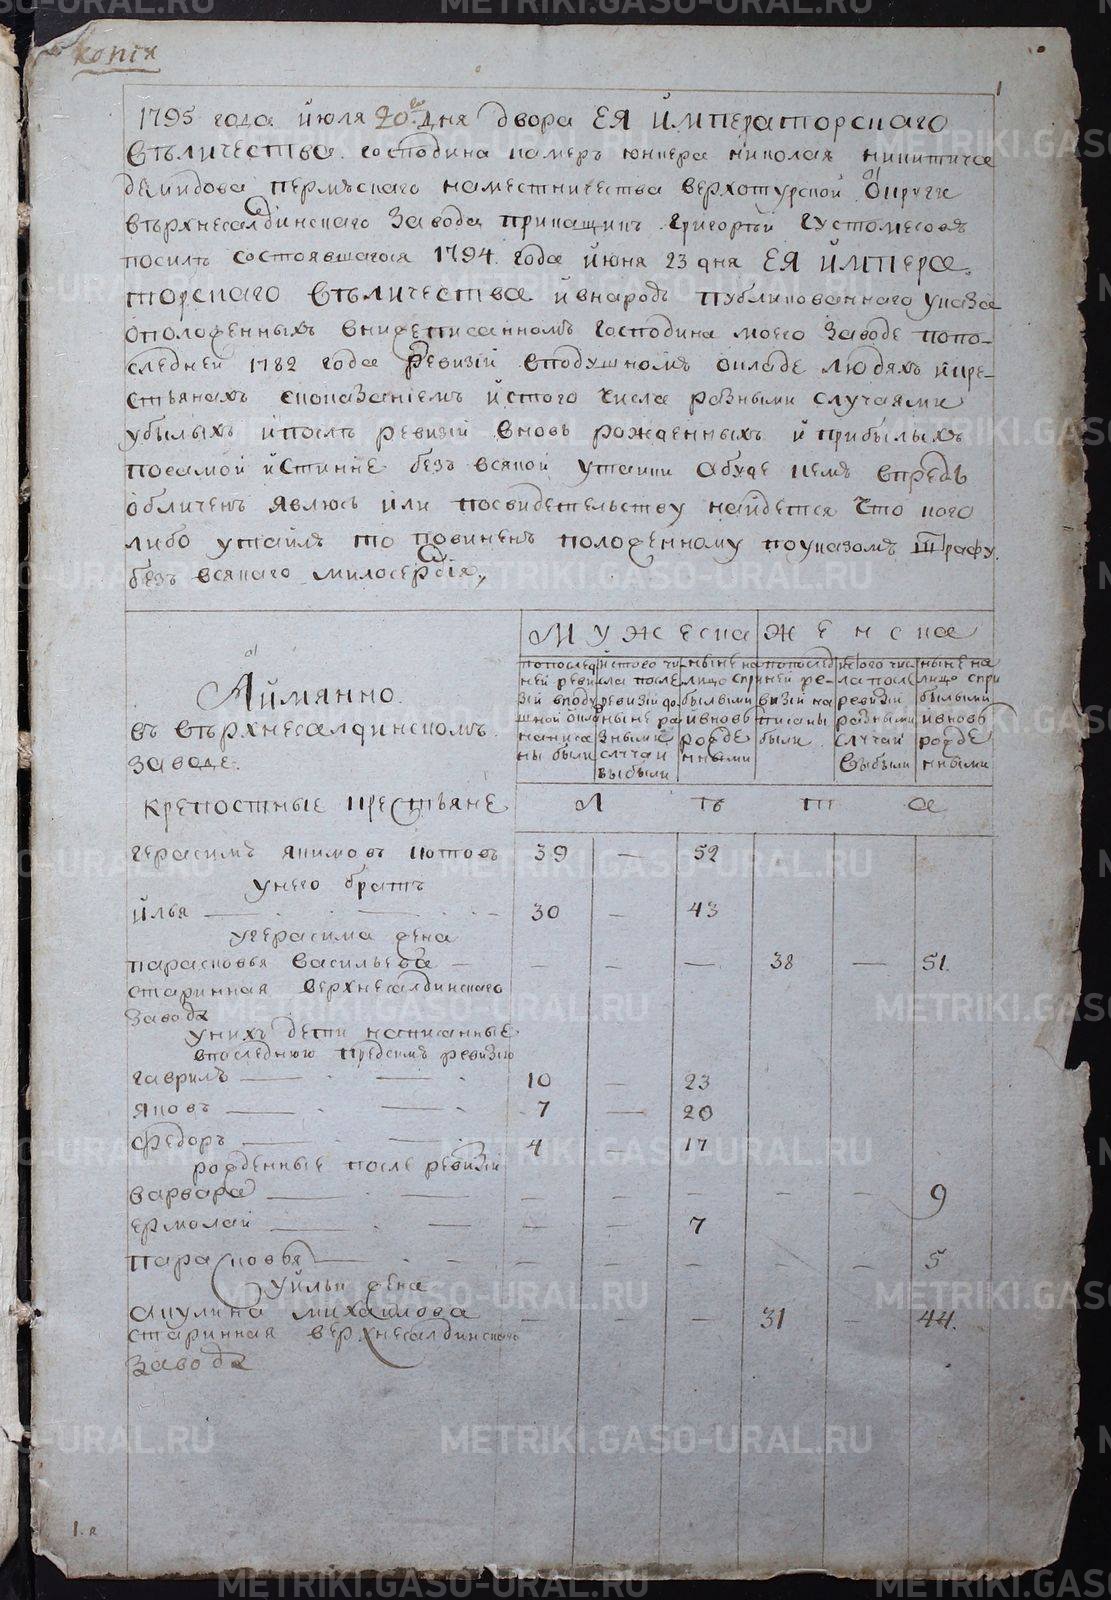 копия
1
1795 года июля 20го дня двора ЕЯ ИМПЕРАТОРСКАГО
ВЪЛИЧЕСТВА господина камеръ юнкера николая никитича
демидова пермъскаго наместничества верхотурской округи
вѣрхнесалдинскаго завода прикащикъ григорѣй густомесовъ
посилѣ состоявшагося 1794 года июня 23 дня ЕЯ ИМПЕРА
ТОРСКАГО ВЪЛИЧЕСТВА ивнародъ публикованнаго указа
оположенныхъ внижеписанномъ господина моего заводе попо-
следней 1782 года ревизии вподушномъ окладе людяхъ икре-
стьянахъ споназаниемъ истого числа разными случаями
убылыхъ ипослѣ ревизии вновь рожденныхъ и прибылыхъ
посамой истинне безъ всякой утаики абуде чемъ впредь
обличенъ явлюсь или посвидетельству найдется что кого
либо утаилъ то повиненъ положенному поуказомъ штрафу
безъ всякаго милосердия,
Аймянно
въ вѣрхнесалдинскомъ
заводе
МУЖЕСКА ЖЕНСКА
попослед истого чи нынена попослед истого чис нынена
ней реви сла после лицо спри ней ре- ла после лицо спри
зии вподу ревизии до былыми визии на ревизии былыми
шной окла ныне ра ивновь писаны разными ивновь
написа зными рожде были случаи рожде
ны были случаи нными выбыли нными
выбыли
Л ѣ т а
крепостные крестьяне
герасимъ якимовъ котовъ 39 — 52
унего братъ
илья — 30 — 43
угерасима жена
парасковья васильева — — — — 38 — 51
старинная верхнесалдинскаго
завода
унихъ дети написанные
впоследнюю предсимъ ревизию
гаврилъ — 10 — 23
яковъ — 7 — 20
федоръ — 4 — 17
рожденные после ревизии
варвара — — — — — — 9
ермолай — — — 7
парасковья — — — — — — 5
уильи жена
акулина михаилова — — — 31 — 44
старинная верхнесалдинскаго
завода
1. я
METRIKI.GASO-URAL.RU